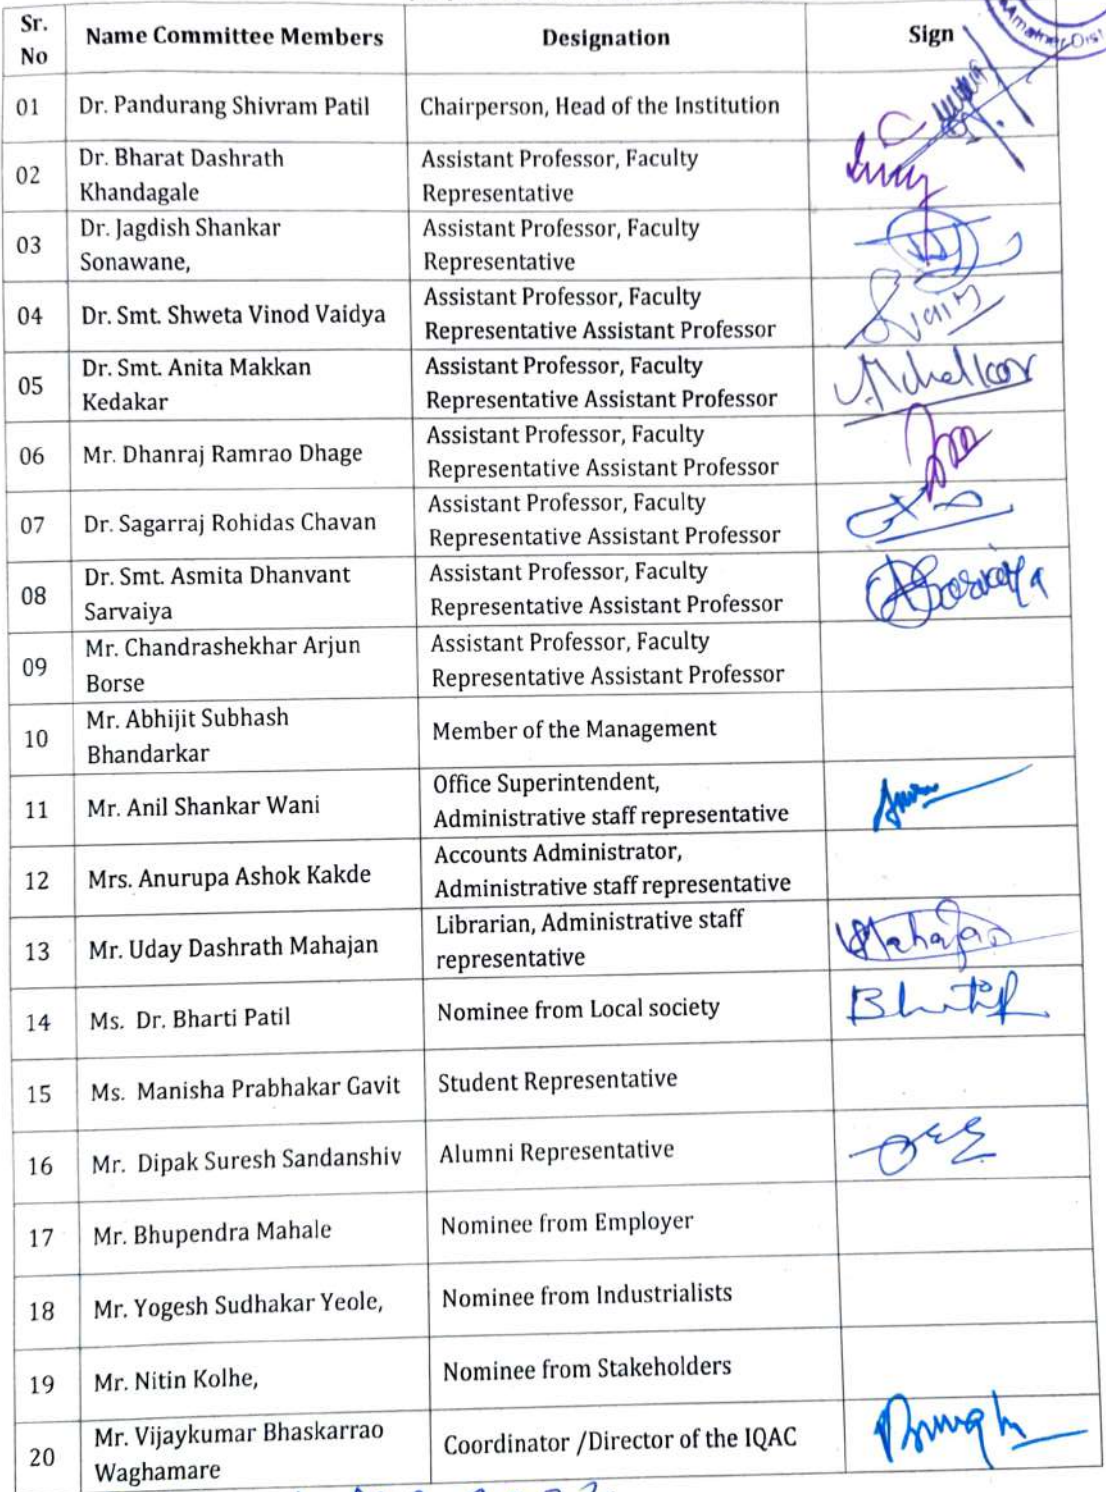 Sr. No Name Committee Members Designation Sign
Amalner Dist
01 Dr. Pandurang Shivram Patil Chairperson, Head of the Institution
02 Dr. Bharat Dashrath Khandagale Assistant Professor, Faculty Representative
03 Dr. Jagdish Shankar Sonawane, Assistant Professor, Faculty Representative
04 Dr. Smt. Shweta Vinod Vaidya Assistant Professor, Faculty Representative Assistant Professor
05 Dr. Smt. Anita Makkan Kedakar Assistant Professor, Faculty Representative Assistant Professor
06 Mr. Dhanraj Ramrao Dhage Assistant Professor, Faculty Representative Assistant Professor
07 Dr. Sagarraj Rohidas Chavan Assistant Professor, Faculty Representative Assistant Professor
08 Dr. Smt. Asmita Dhanvant Sarvaiya Assistant Professor, Faculty Representative Assistant Professor
09 Mr. Chandrashekhar Arjun Borse Assistant Professor, Faculty Representative Assistant Professor
10 Mr. Abhijit Subhash Bhandarkar Member of the Management
11 Mr. Anil Shankar Wani Office Superintendent, Administrative staff representative
12 Mrs. Anurupa Ashok Kakde Accounts Administrator, Administrative staff representative
13 Mr. Uday Dashrath Mahajan Librarian, Administrative staff representative
14 Ms. Dr. Bharti Patil Nominee from Local society
15 Ms. Manisha Prabhakar Gavit Student Representative
16 Mr. Dipak Suresh Sandanshiv Alumni Representative
17 Mr. Bhupendra Mahale Nominee from Employer
18 Mr. Yogesh Sudhakar Yeole, Nominee from Industrialists
19 Mr. Nitin Kolhe, Nominee from Stakeholders
20 Mr. Vijaykumar Bhaskarrao Waghamare Coordinator /Director of the IQAC